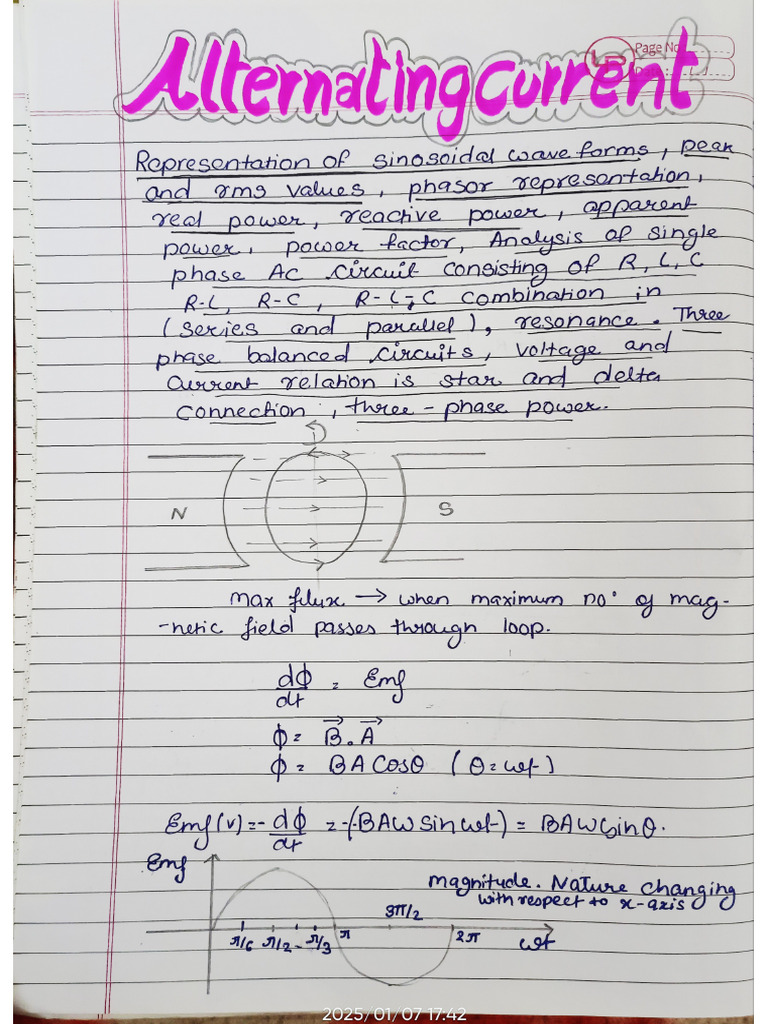 Alternating Current
Page No
Representation of sinosoidal wave forms, peak
and rms values, phasor represontation,
real power, reactive power, apparent
power, power factor, Analysis of single
phase AC circuit consisting of R, L, C
R-L, R-C, R-L-C combination in
(series and parallel), resonance. Three
phase balanced circuits, voltage and
Current relation is star and delta
connection, three-phase power.
N S
max flux → when maximum no. of mag-
-netic field passes through loop.
dϕ/dt = Emf
ϕ = B⃗.A⃗
ϕ = BA Cosθ (θ=ωt)
Emf(v) = -dϕ/dt = -(-BAω Sin ωt) = BAω Sinθ.
Emf
magnitude. Nature changing
with respect to x-axis
3π/2
π/6 π/2 - π/3 π 2π ωt
2025/01/07 17:42